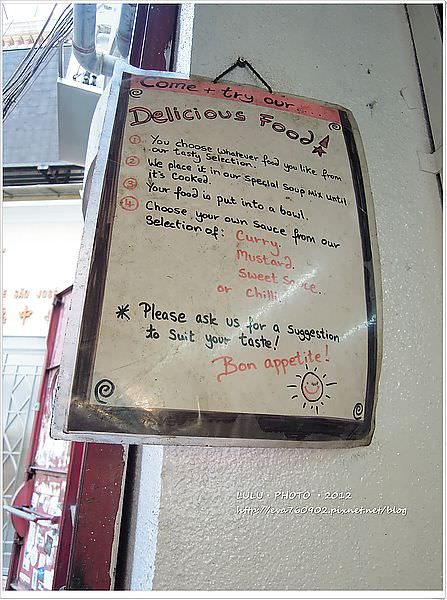 Come + try our...
Delicious Food!
1 You choose whatever food you like from
our tasty selection.
2 We place it in our special soup mix until
it's cooked.
3 Your food is put into a bowl.
4 Choose your own sauce from our
selection of: Curry,
Mustard,
sweet sauce..
or chilli
* Please ask us for a suggestion
to suit your taste!
Bon appetite!
LULU · PHOTO · 2012
http://eva760902.pixnet.net/blog